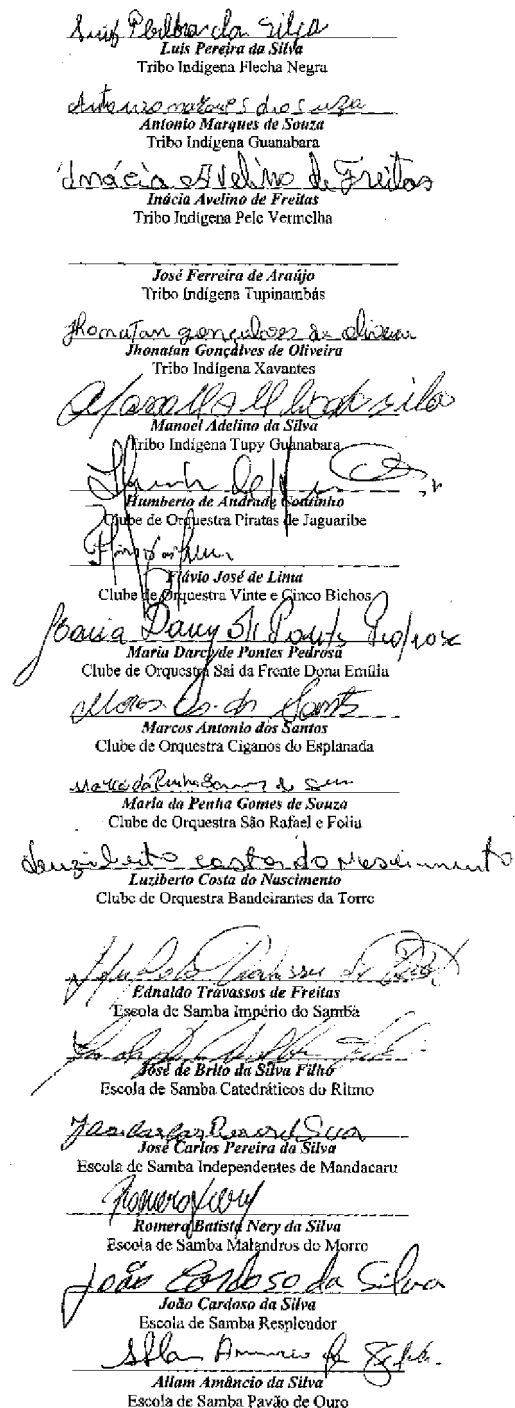 Luis Pereira da Silva
Luis Pereira da Silva
Tribo Indígena Flecha Negra
Antonio marques de souza
Antonio Marques de Souza
Tribo Indígena Guanabara
Inácia Avelino de Freitas
Inácia Avelino de Freitas
Tribo Indígena Pele Vermelha
José Ferreira de Araújo
Tribo Indígena Tupinambás
Jhonatan gonçalves de oliveira
Jhonatan Gonçalves de Oliveira
Tribo Indígena Xavantes
Manoel Adelino da Silva
Tribo Indígena Tupy Guanabara
Humberto de Andrade Coutinho
Clube de Orquestra Piratas de Jaguaribe
Flávio José de Lima
Clube de Orquestra Vinte e Cinco Bichos
Maria Darcy de Pontes Pedrosa
Maria Darcy de Pontes Pedrosa
Clube de Orquestra Sai da Frente Dona Emília
Marcos dos Santos
Marcos Antonio dos Santos
Clube de Orquestra Ciganos do Esplanada
Maria da Penha Gomes de
Maria da Penha Gomes de Souza
Clube de Orquestra São Rafael e Folia
Luziberto costa do Nascimento
Luziberto Costa do Nascimento
Clube de Orquestra Bandeirantes da Torre
Ednaldo Travassos de Freitas
Escola de Samba Império do Samba
José de Brito da Silva Filho
Escola de Samba Catedráticos do Ritmo
José Carlos Pereira da Silva
José Carlos Pereira da Silva
Escola de Samba Independentes de Mandacaru
Romero Nery
Romero Batista Nery da Silva
Escola de Samba Malandros do Morro
João Cardoso da Silva
João Cardoso da Silva
Escola de Samba Resplendor
Allan Amancio da Silva
Allam Amâncio da Silva
Escola de Samba Pavão de Ouro